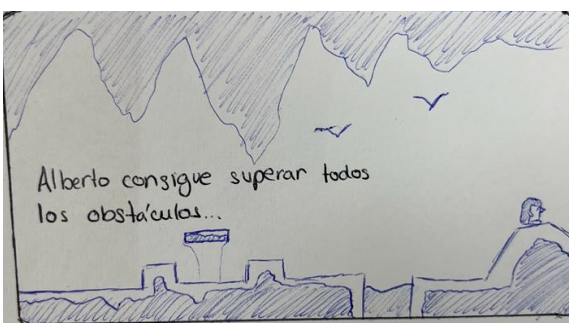 Alberto consigue superar todos
los obstáculos...